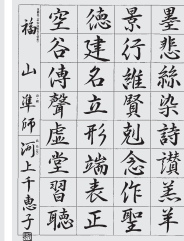 墨悲絲染詩讃羔羊
景行維賢剋念作聖
徳建名立形端表正
空谷傳聲虚堂習聽
福山 準師 河上千恵子